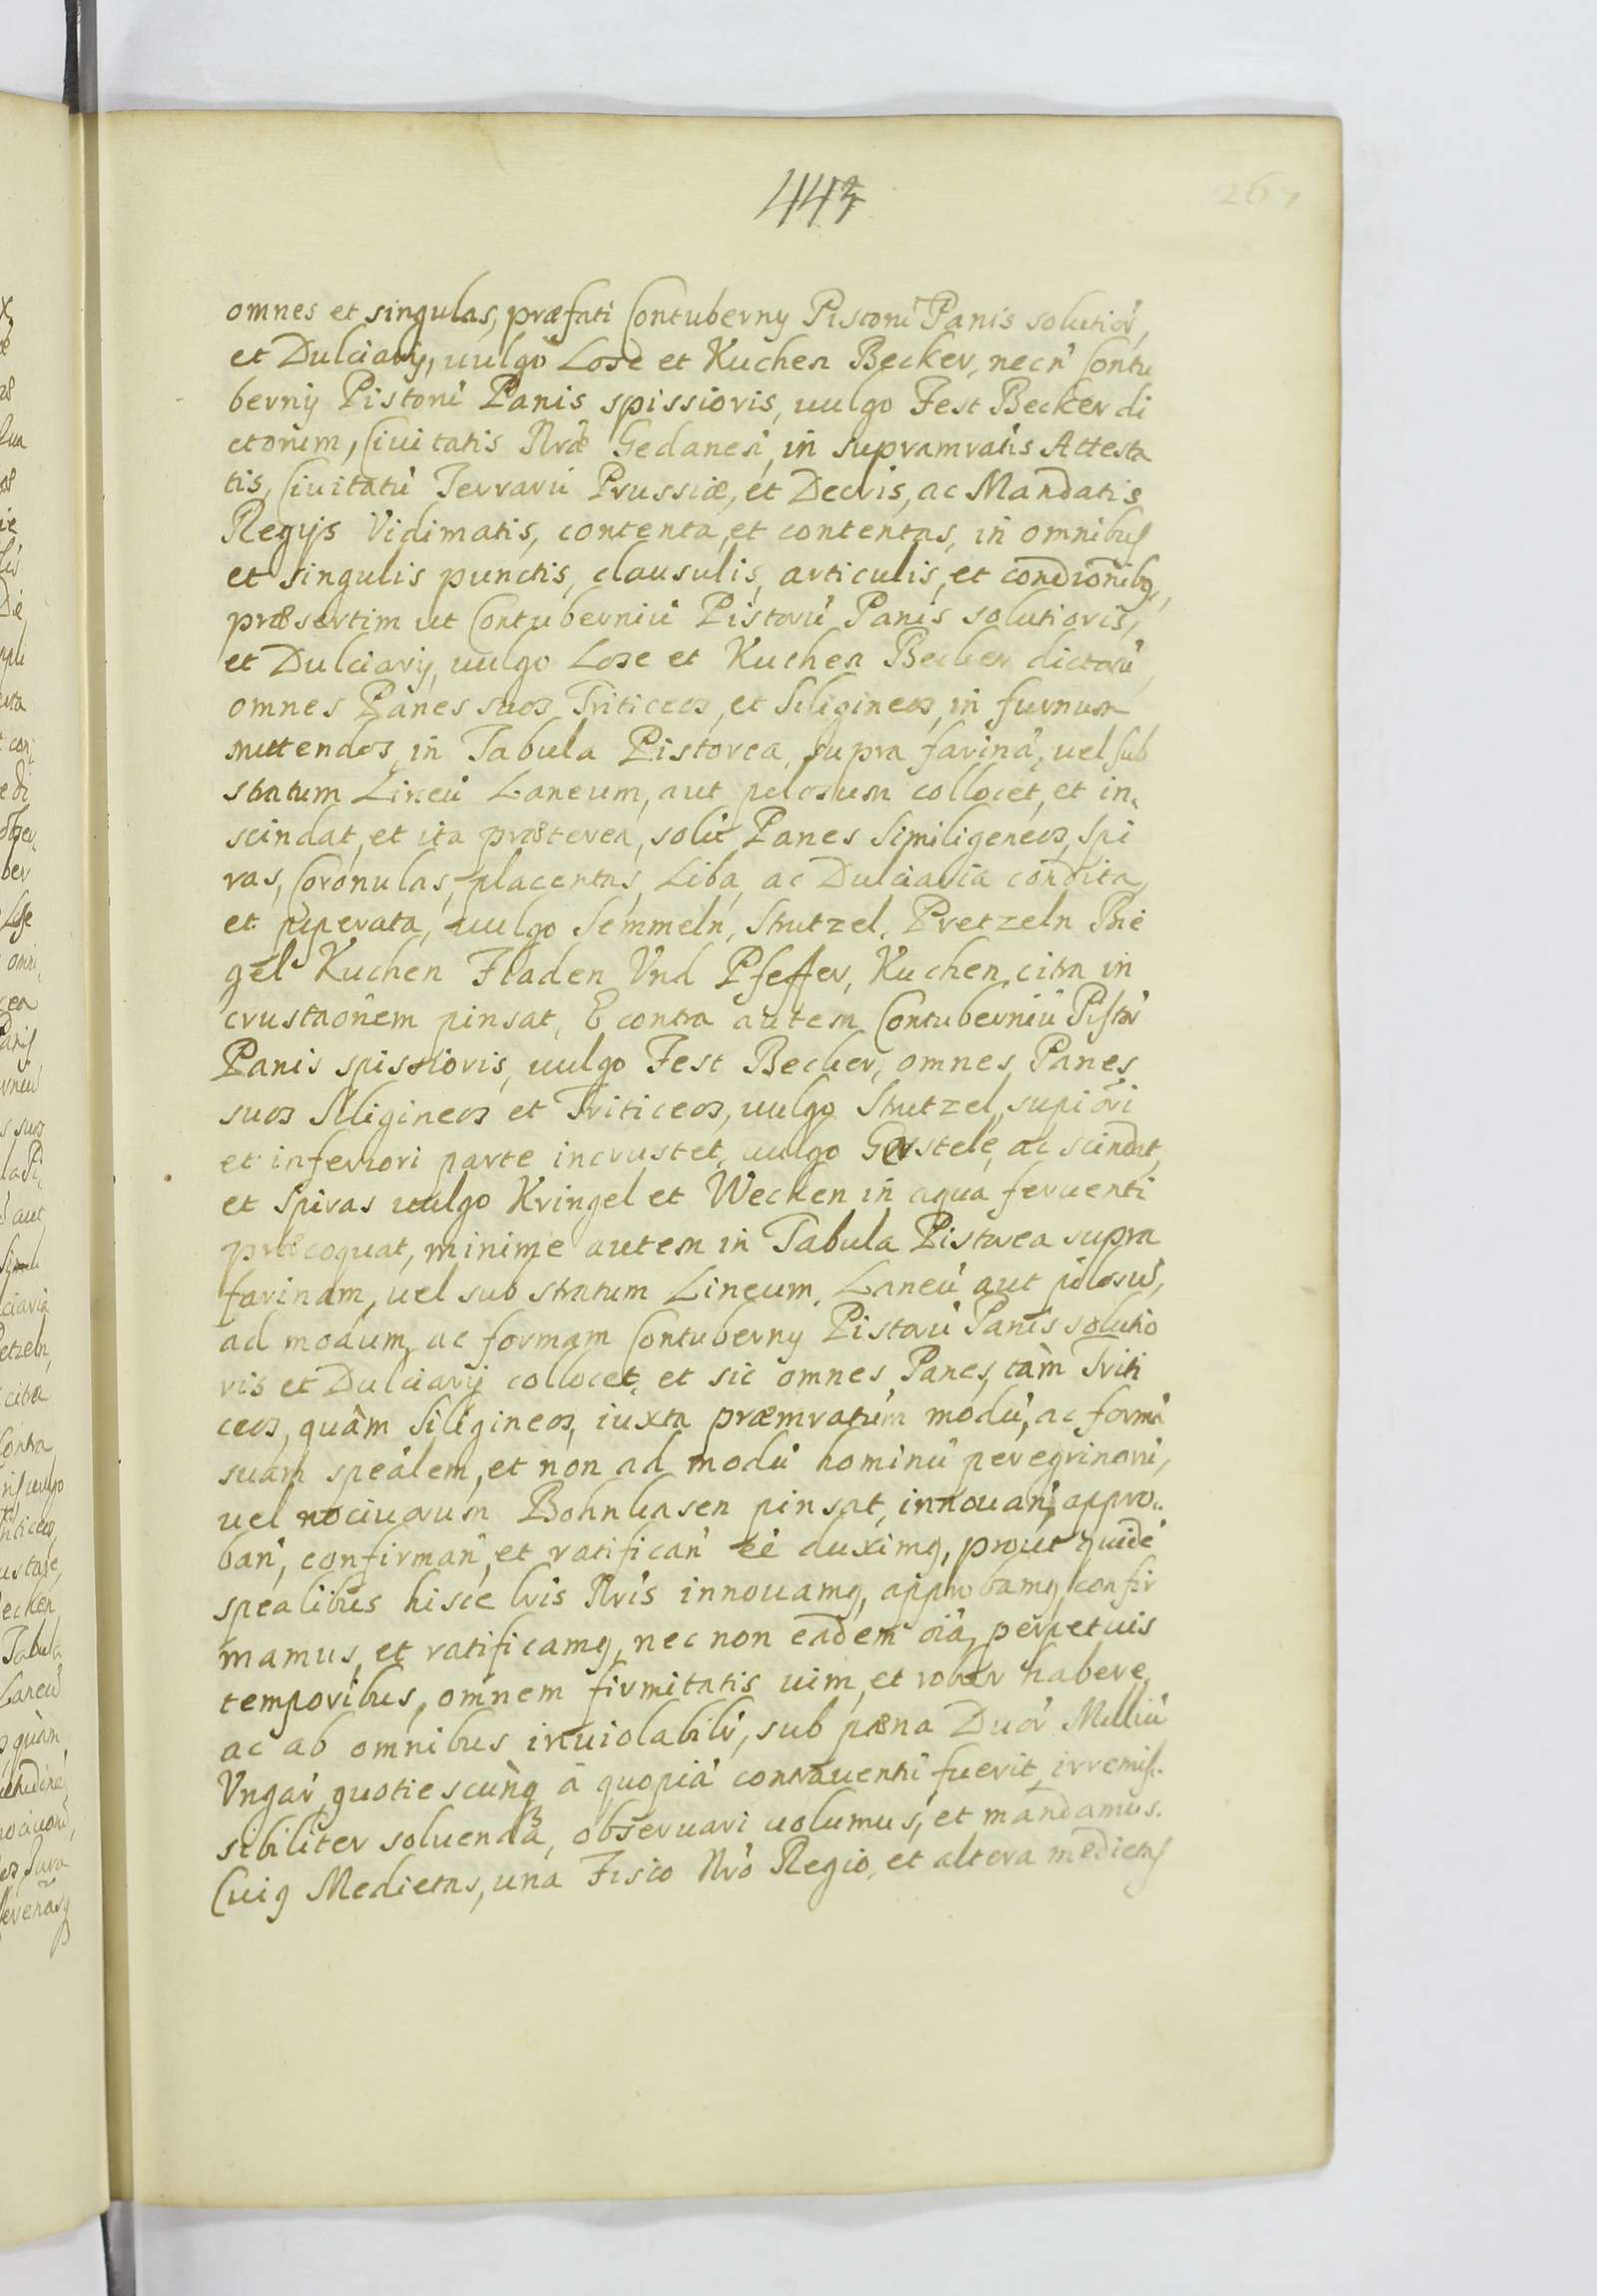 443
267
omnes et singulas, præfati Contuberny Pistorũ Panis solutior̃,
et Dulciarij, uulgo Lose et Kuchen Becker, necñ Contu
bernij Pistorũ Panis spissioris, uulgo Fest Becker di
ctorum, Ciuitatis Nræ Gedanen̄, in supramratis Attesta
tis, Ciuitatũ Terrarũ Prussiæ, et Decris, ac Mandatis
Regijs Vidimatis, contenta, et contentas, in omnibus
et singulis punctis, clausulis, articulis, et condionibꝫ,
præsertim ut Contuberniũ Pistorũ Panis solutioris,
et Dulciarij, uulgo Lose et Kuchen Becker dictorũ
omnes Panes suos Triticeos, et Siligineos, in furnum
mittendos, in Tabula Pistorea, supra farinã, uel sub
stratum Lineũ Laneum, aut pilosum collocet, et in,
scindat, et ita præterea, solũ Panes Similigeneos, Spi
ras, Coronulas, placentas, Liba, ac Dulciaria condita,
et piperata, uulgo Semmeln, Strutzel, Pretzeln Prie
gel Kuchen Fladen Vnd Pfeffer, Kuchen, citra in
crustaõnem pinsat, E contra autem Contuberniũ Pistor̃
Panis spissioris, uulgo Fest Becker, omnes, Panes
suos Siligineos et Triticeos, uulgo Strutzel, supiori
et inferiori parte incrustet, uulgo Gerstele, ac scindat,
et Spiras uulgo Kringel et Wecken in aqua feruenti
præcoquat, minime autem in Tabula Pistorea supra
farinam, uel sub stratum Lineum, Laneũ aut pilosũ,
ad modum, ac formam Contuberny Pistorũ Panis solutio
ris et Dulciarij collocet, et sic omnes, Panes, tàm Triti
ceos, quàm Siligineos, iuxta præmratum modũ, ac formã
suam speãlem, et non ad modũ hominũ peregrinorũ,
uel nociuorum Bohnhasen pinsat, innouan̄, appro„
ban̄, confirman̄, et ratifican̄ eẽ duximꝫ, prout quidẽ
spealibus hisce lris Nris innouamꝫ, approbamꝫ, confir
mamus, et ratificamꝫ, nec non eadem oĩa, perpetuis
temporibus, omnem firmitatis uim, et robur habere,
ac ab omnibus inuiolabilr̃, sub pæna Duor̃ Milliũ
Vngar̃, quotiescunꝗ à quopiã contrauentũ fuerit, irremis„
sibiliter soluenda, obseruari uolumus, et mandamus.
Cuiꝫ Medietas, una Fisco Nro Regio, et altera medietas